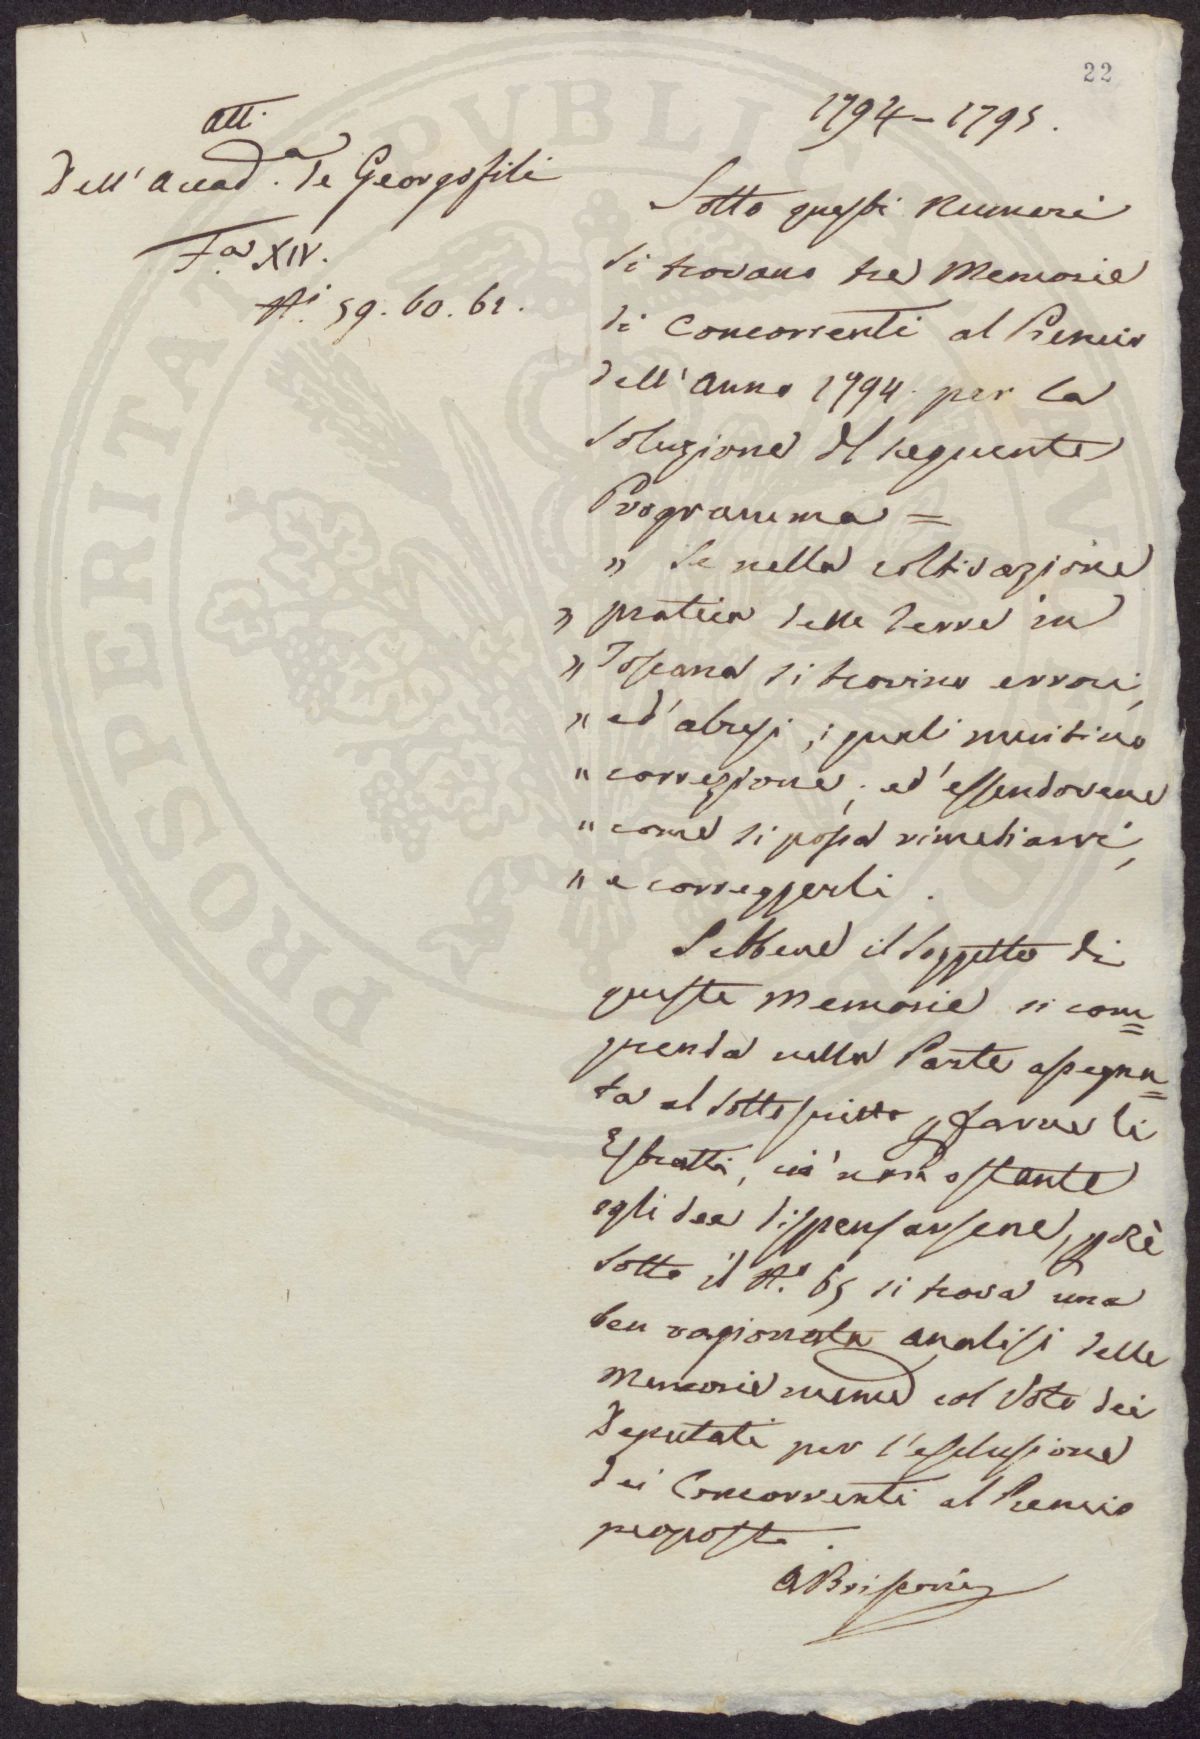 22
1794-1795.
Att.
Dell'Accad.a de Georgofili
F.a XIV.
N.i 59. 60. 61.
Sotto questi Numeri
si trovano tre Memorie
di Concorrenti al Premio
dell'Anno 1794. per la
soluzione del seguente
Programma =
" Se nella coltivazione
" pratica delle Terre in
" Toscana si trovino errori,
" ed'abusi, i quali meritino
" correzione; ed'essendovene
" come si possa rimediarvi,
" e correggerli.
Sebbene il soggetto di
queste Memorie si com=
prenda nella Parte assegna=
ta al sottoscritto p farne li
Estratti, ciò non ostante
egli dee dispensarsene, pchè
sotto il N.o 65 si trova una
ben ragionata analisi delle
Memorie med.me col Voto dei
Deputati per l'esclusione
dei Concorrenti al Premio
proposto.
PROSPERITATI PVBLICAE